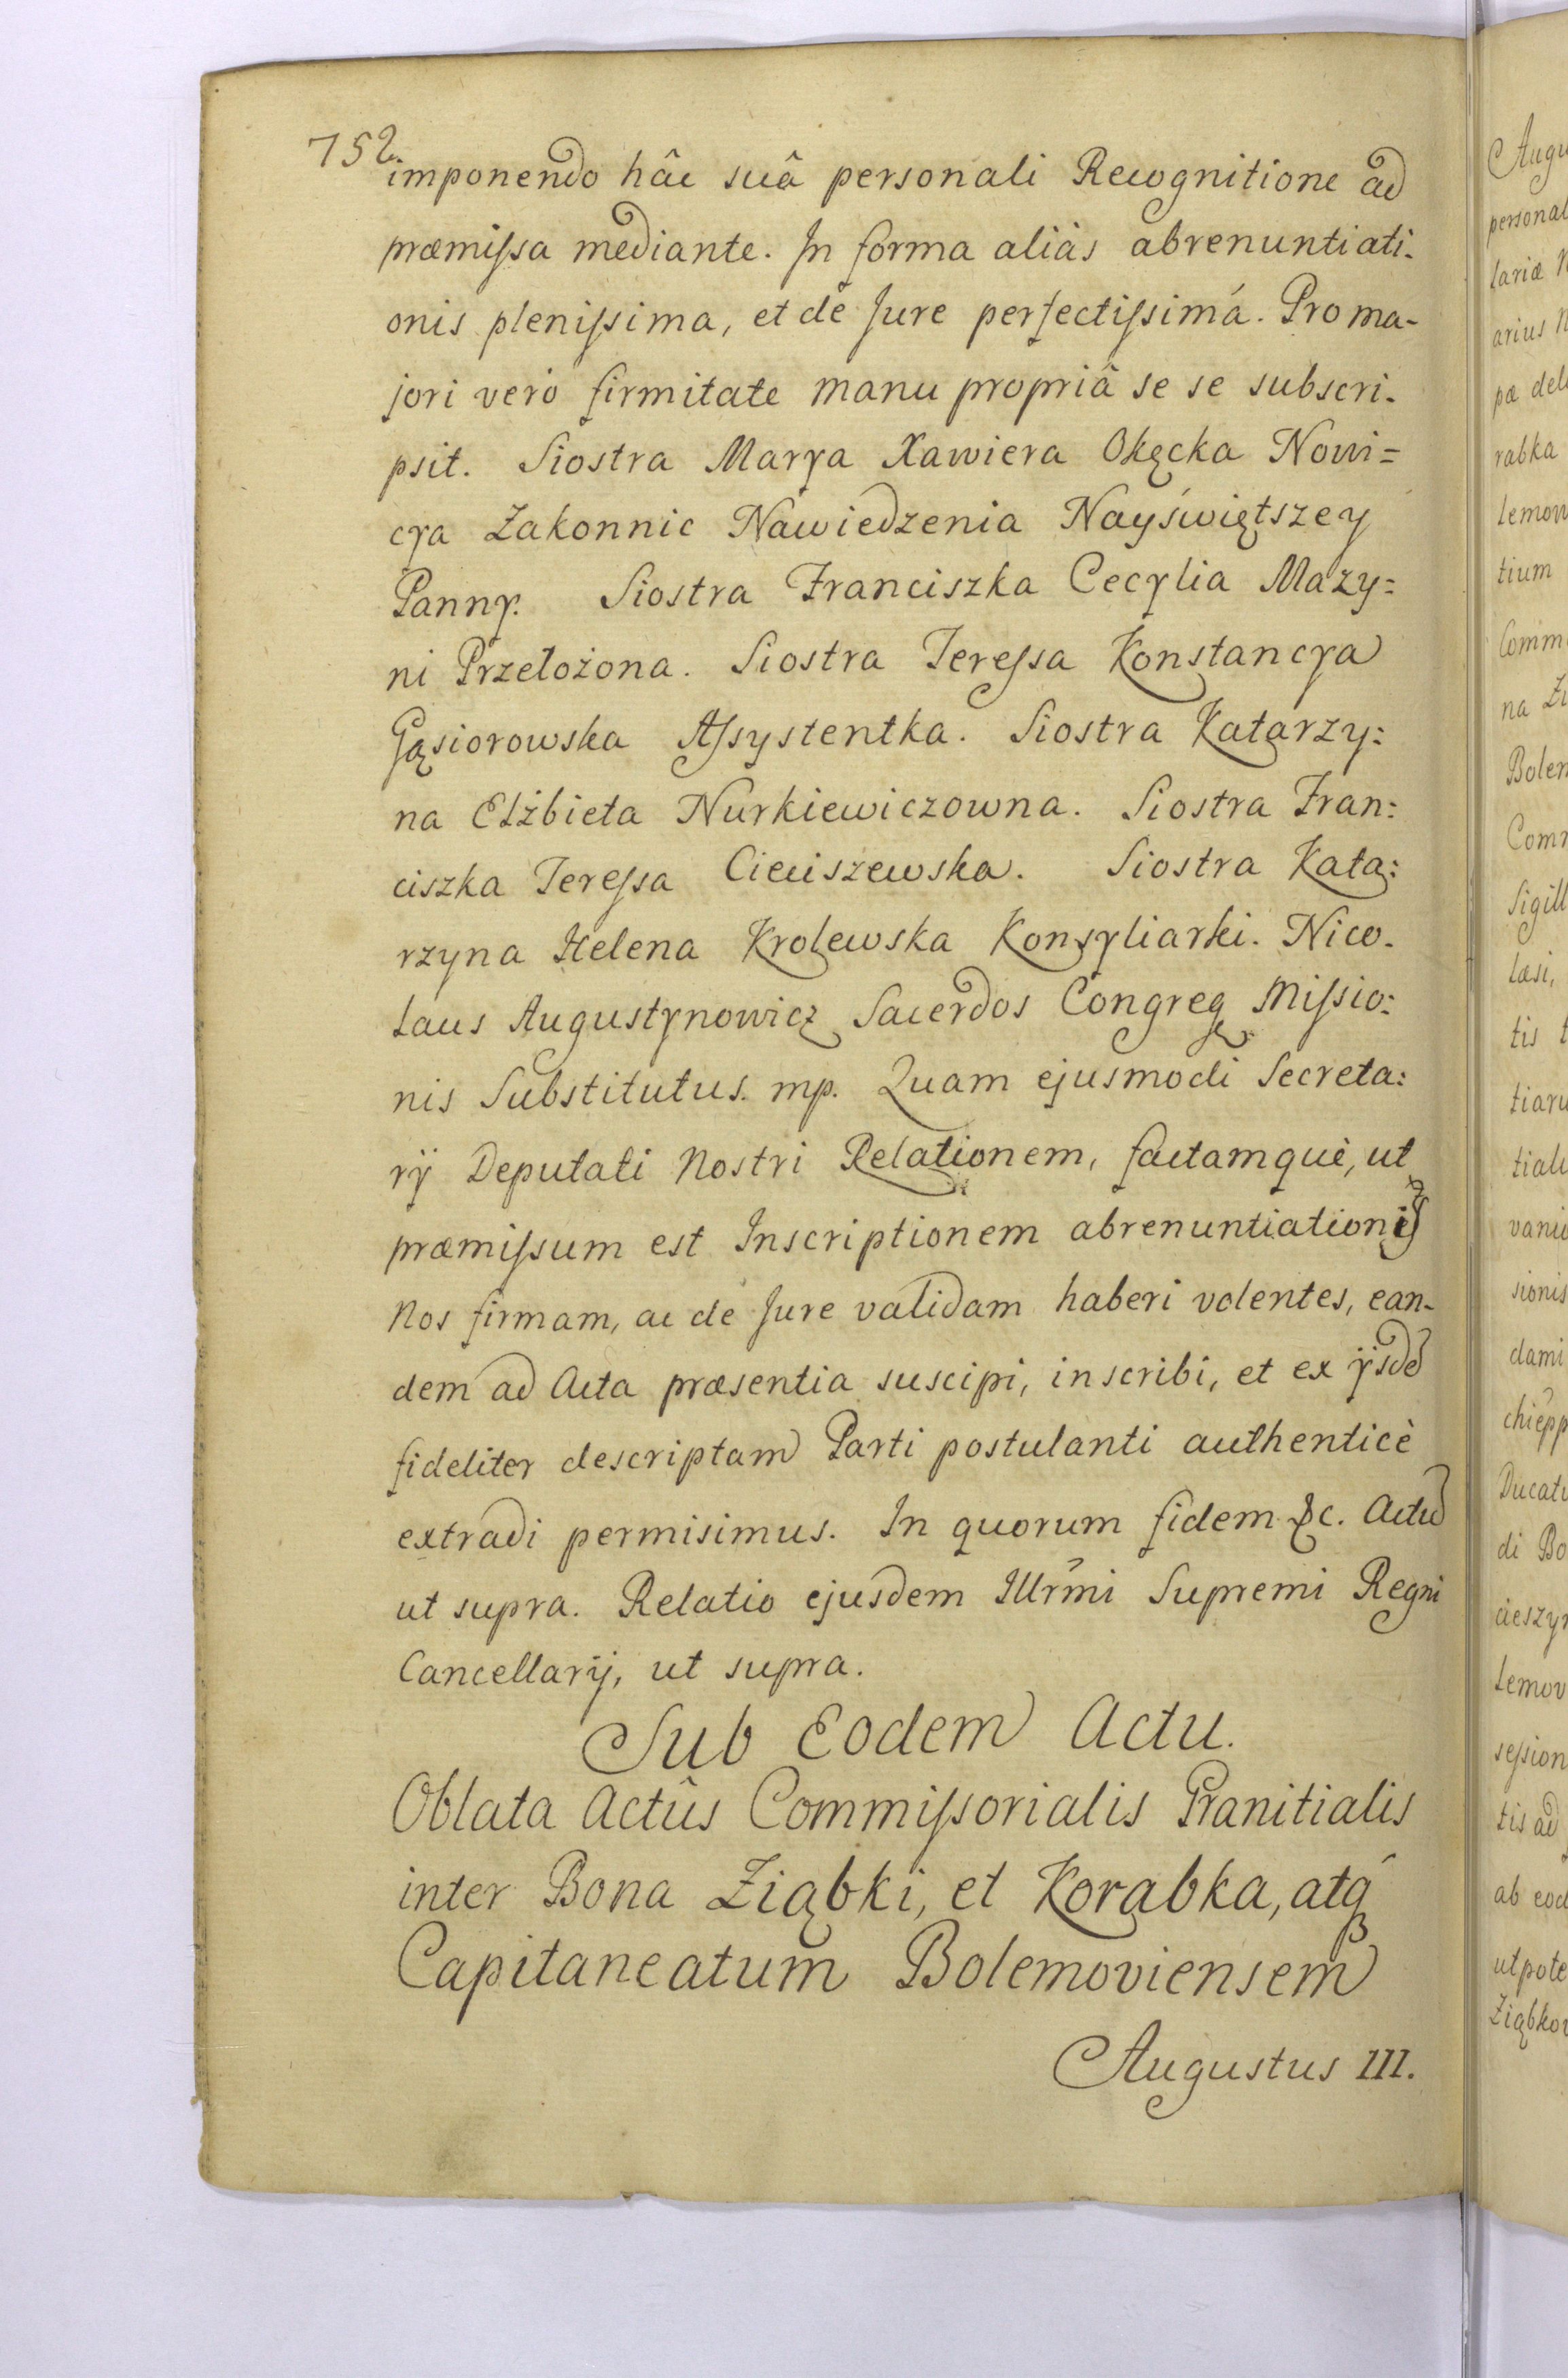 752.
imponendo hâc suâ personali Recognitione ad
præmissa mediante. In forma aliàs abrenuntiati-
onis plenissima, et de Jure perfectissimá. Pro ma-
jori verò firmitate manu propriâ se se subscri-
psit. Siostra Marya Xawiera Okęcka Nowi=
cya Zakonnic Nawiedzenia Nayświętszey
Panny. Siostra Franciszka Cecylia Mazy=
ni Przełożona. Siostra Teressa Konstancya
Gąsiorowska Assystentka. Siostra Katarzy:
na Elżbieta Nurkiewiczowna. Siostra Fran:
ciszka Teressa Cieciszewska. Siostra Kata:
rzyna Helena Krolewska Konsyliarki. Nico-
laus Augustynowicz Sacerdos Congreg Missio:
nis Substitutus. mp. Quam ejusmodi Secreta:
rij Deputati Nostri Relationem, factamquè, ut
præmissum est Inscriptionem abrenuntiationis
Nos firmam, ac de Jure validam haberi volentes, ean-
dem ad Acta præsentia suscipi, inscribi, et ex ijsdẽ
fideliter descriptam Parti postulanti authenticè
extradi permisimus. In quorum fidem &c. Actũ
ut supra. Relatio ejusdem Illrm̃i Supremi Regni
Cancellarij, ut supra.
Sub Eodem Actu.
Oblata Actûs Commissorialis Granitialis
inter Bona Ziąbki, et Korabka, atq́
Capitaneatum Bolemoviensem
Augustus III.
Augu
personal
lariæ
arius
pæ
rabka
lemov
tium
Comm
na
Bolem
Comm
Sigill
læsi,
tis
tiaru
tiali
vanic
sionis
dami
chiepp
Ducatu
di Bo
cieszyn
lemov
session
tis ad
ab eod
utpote
Ziąbkov